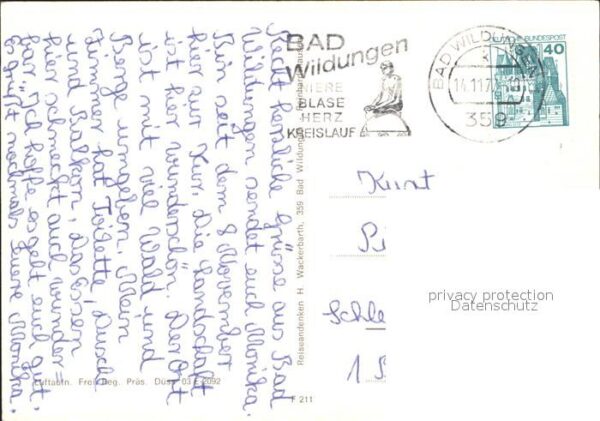 Recht herzliche Grüsse aus Bad
Wildungen sendet euch Monika.
Bin seit dem 8 November
hier zur Kur. die Landschaft
ist hier wunderschön. Der Ort
ist mit viel Wald und
Berge umgeben. Mein
Zimmer hat Toilette, Dusche
und Balkon, Das Essen
hier schmeckt auch wunder=
bar. Ich hoffe es geht euch gut.
Es grüßt nochmals Euere Monika.
BAD
Wildungen
NIERE
BLASE
HERZ
KREISLAUF
BAD WILDUNGEN
14.11.7
359
DEUTSCHE BUNDESPOST
40
Reiseandenken H. Wackerbarth, 359 Bad Wildungen
Kurt
Schle
privacy protection
Datenschutz
Luftaufn. Frei. Reg. Präs. Düss. 03 E 2092
F 211